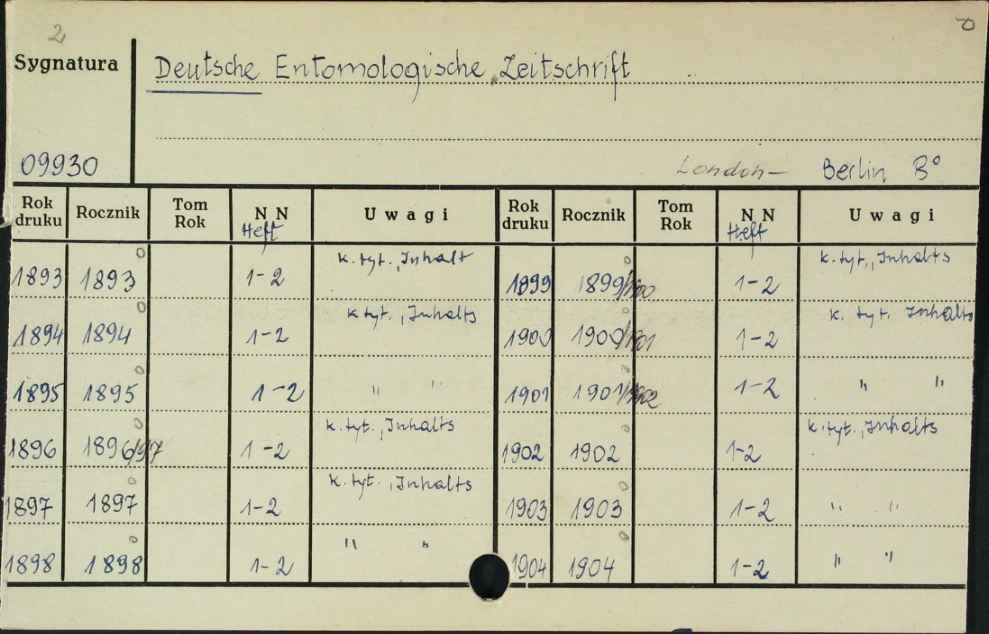 2
Sygnatura
Deutsche Entomologische Zeitschrift
09930
London – Berlin 8°
Rok druku Rocznik Tom Rok N N Heft Uwagi Rok druku Rocznik Tom Rok N N Heft Uwagi
1893 1893 1-2 k. tyt., Inhalt 1899 1899/1900 1-2 k. tyt., Inhalts
1894 1894 1-2 k tyt., Inhalts 1900 1900/1901 1-2 k. tyt. Inhalts
1895 1895 1-2 " " 1901 1901/1902 1-2 " "
1896 1896/97 1-2 k. tyt., Inhalts 1902 1902 1-2 k. tyt., Inhalts
1897 1897 1-2 k. tyt., Inhalts 1903 1903 1-2 " "
1898 1898 1-2 " " 1904 1904 1-2 " "